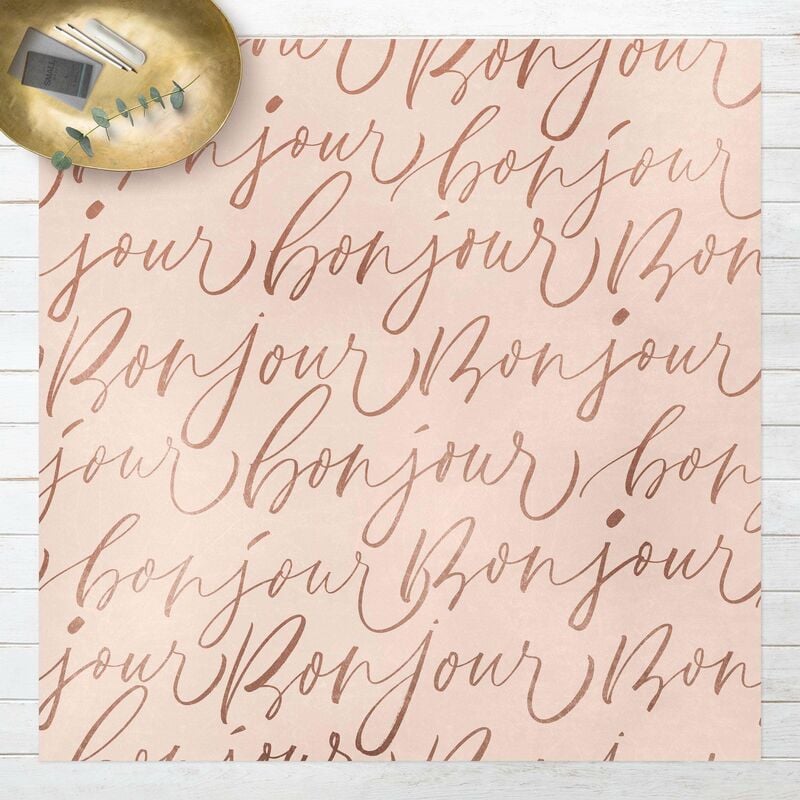 Bonjour
SMALL
bonjour bonjour
jour bonjour Bon
Bonjour Bonjour
jour bonjour bon
bonjour Bonjour
jour Bonjour Bon
bonjour Bonjour